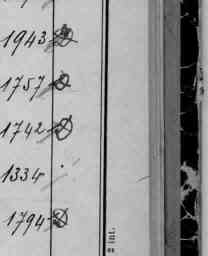 1943
1757
1742
1334
1794
int.